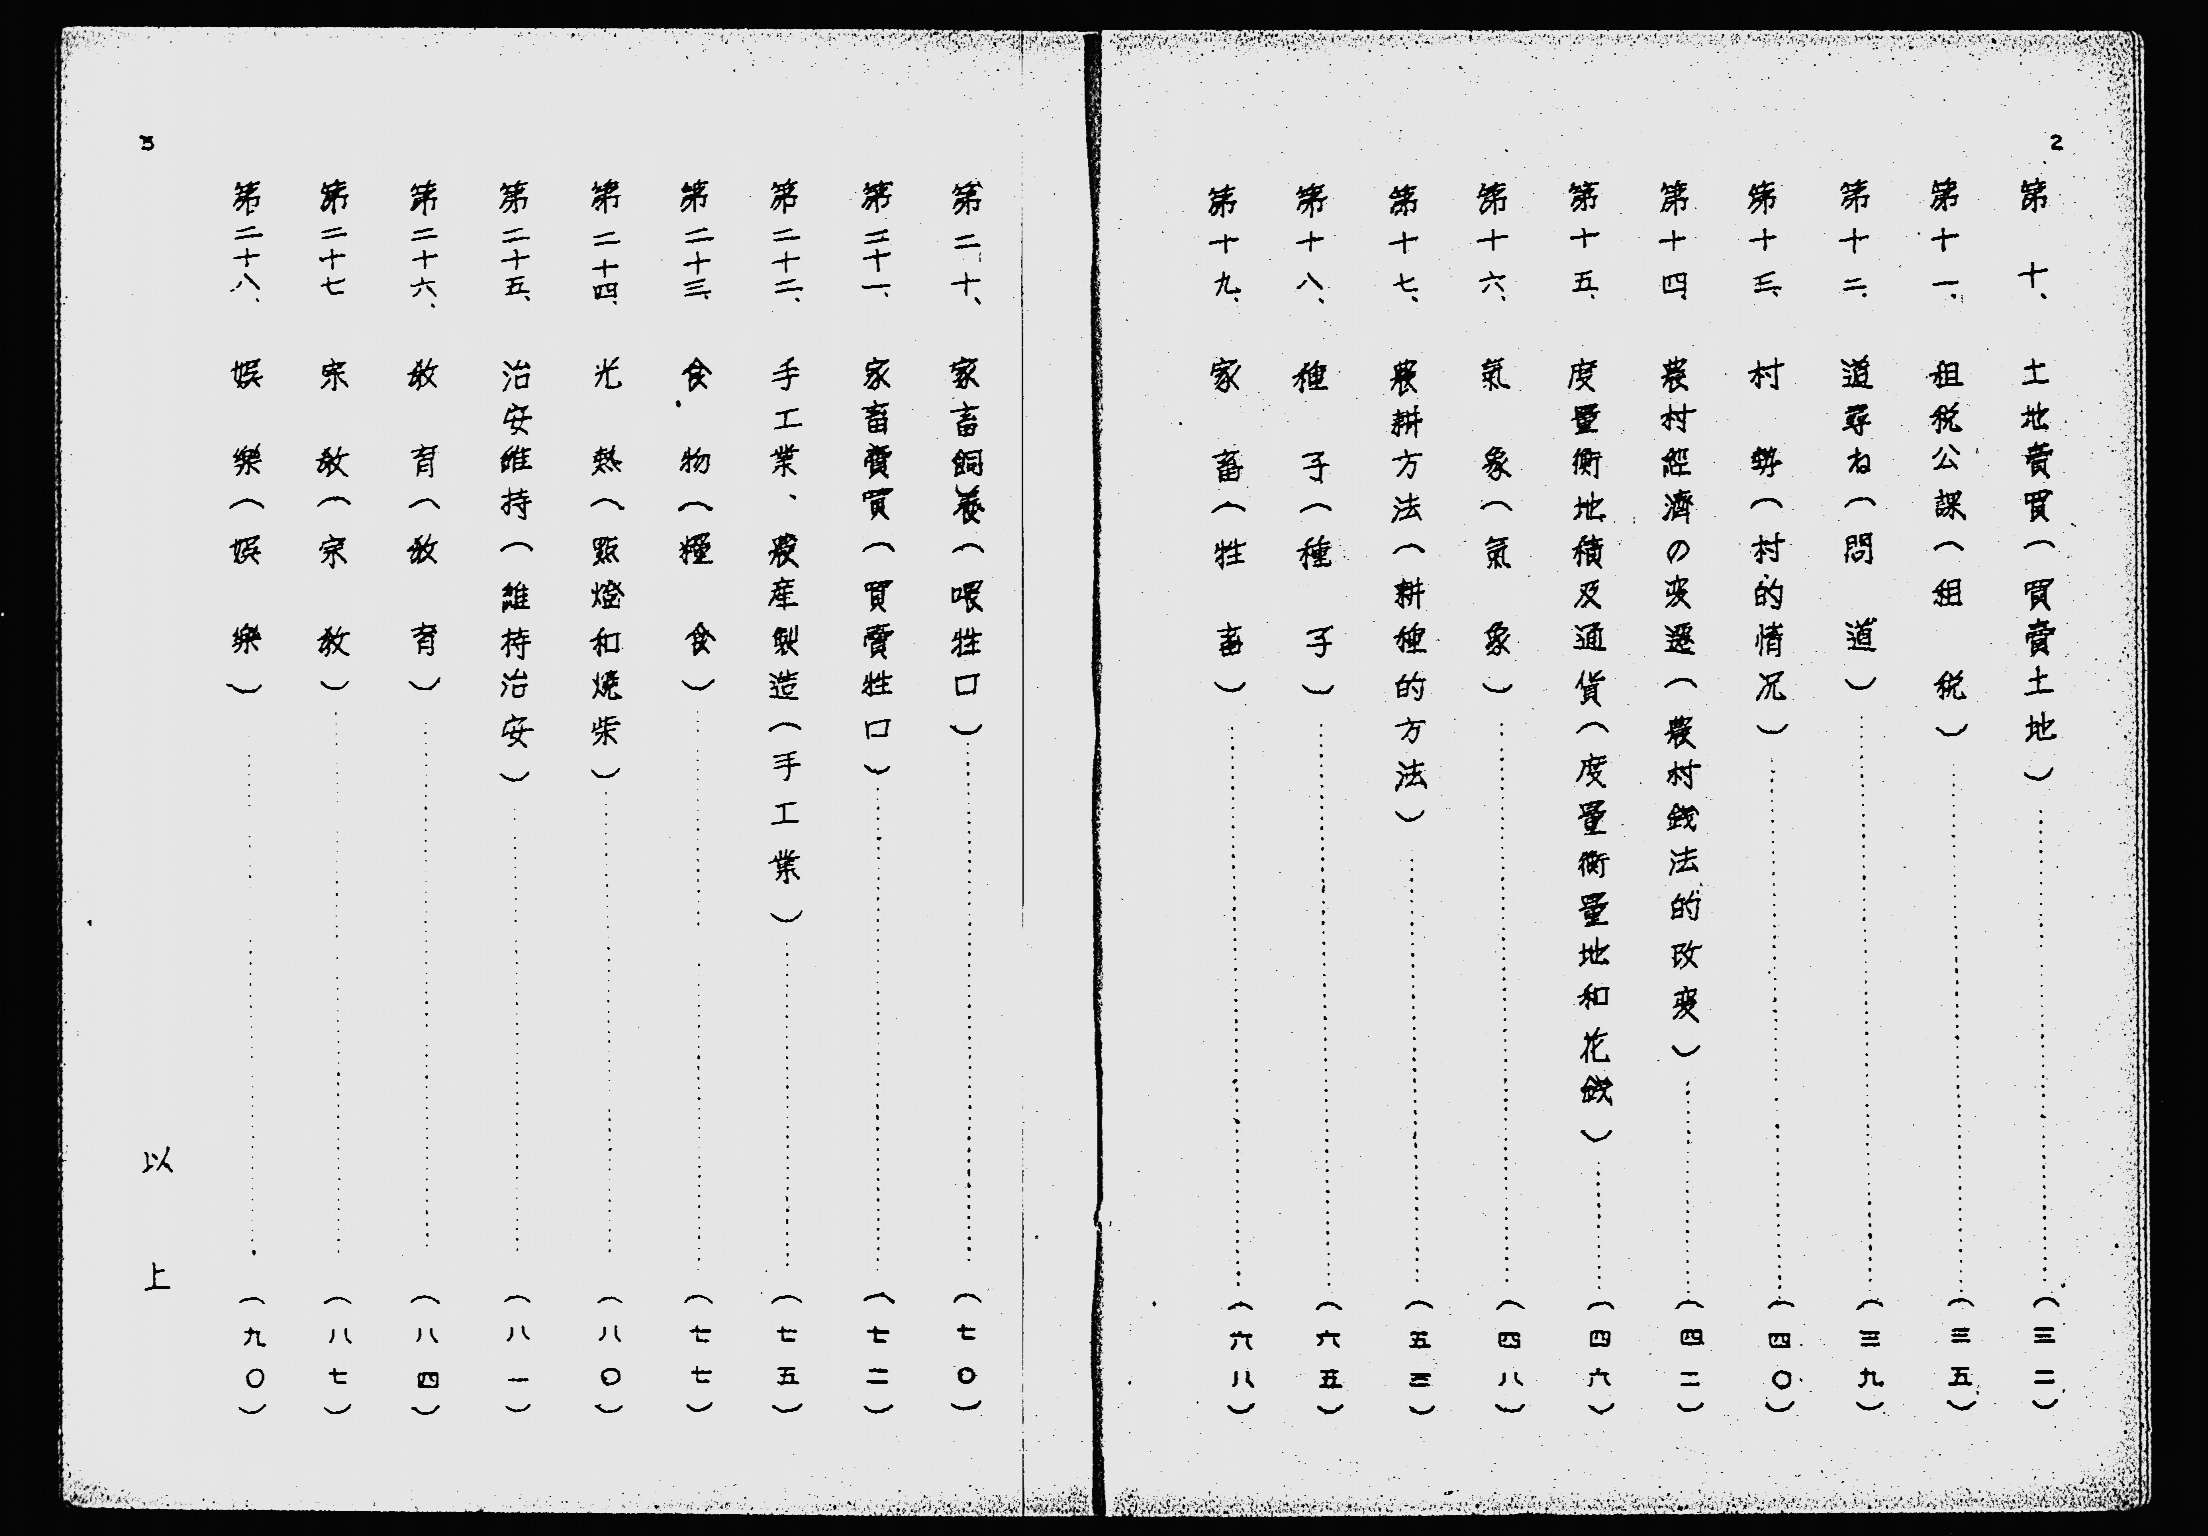 2
第十、土地賣買（買賣土地）……（三二）
第十一、租税公課（租税）……（三五）
第十二、道尋ね（問道）……（三九）
第十三、村勢（村的情况）……（四〇）
第十四、農村經濟の変遷（農村錢法的改変）……（四二）
第十五、度量衡地積及通貨（度量衡量地和花錢）……（四六）
第十六、氣象（氣象）……（四八）
第十七、農耕方法（耕種的方法）……（五三）
第十八、種子（種子）……（六五）
第十九、家畜（牲畜）……（六八）
第二十、家畜飼養（喂牲口）……（七〇）
第二十一、家畜賣買（買賣牲口）……（七二）
第二十二、手工業、農産製造（手工業）……（七五）
第二十三、食物（糧食）……（七七）
第二十四、光熱（點燈和燒柴）……（八〇）
第二十五、治安維持（維持治安）……（八一）
第二十六、敎育（敎育）……（八四）
第二十七 宗敎（宗敎）……（八七）
第二十八、娯樂（娯樂）……（九〇）
以上
3